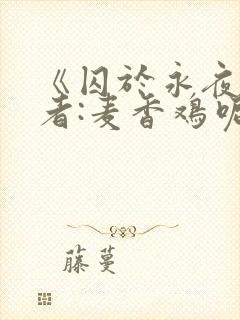 《囚於永夜
者:麦香鸡呢
藤蔓